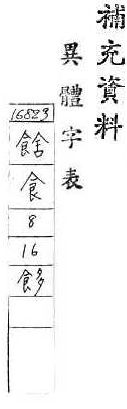 補充資料
異體字表
16823
䬷
食
8
16
𩛻